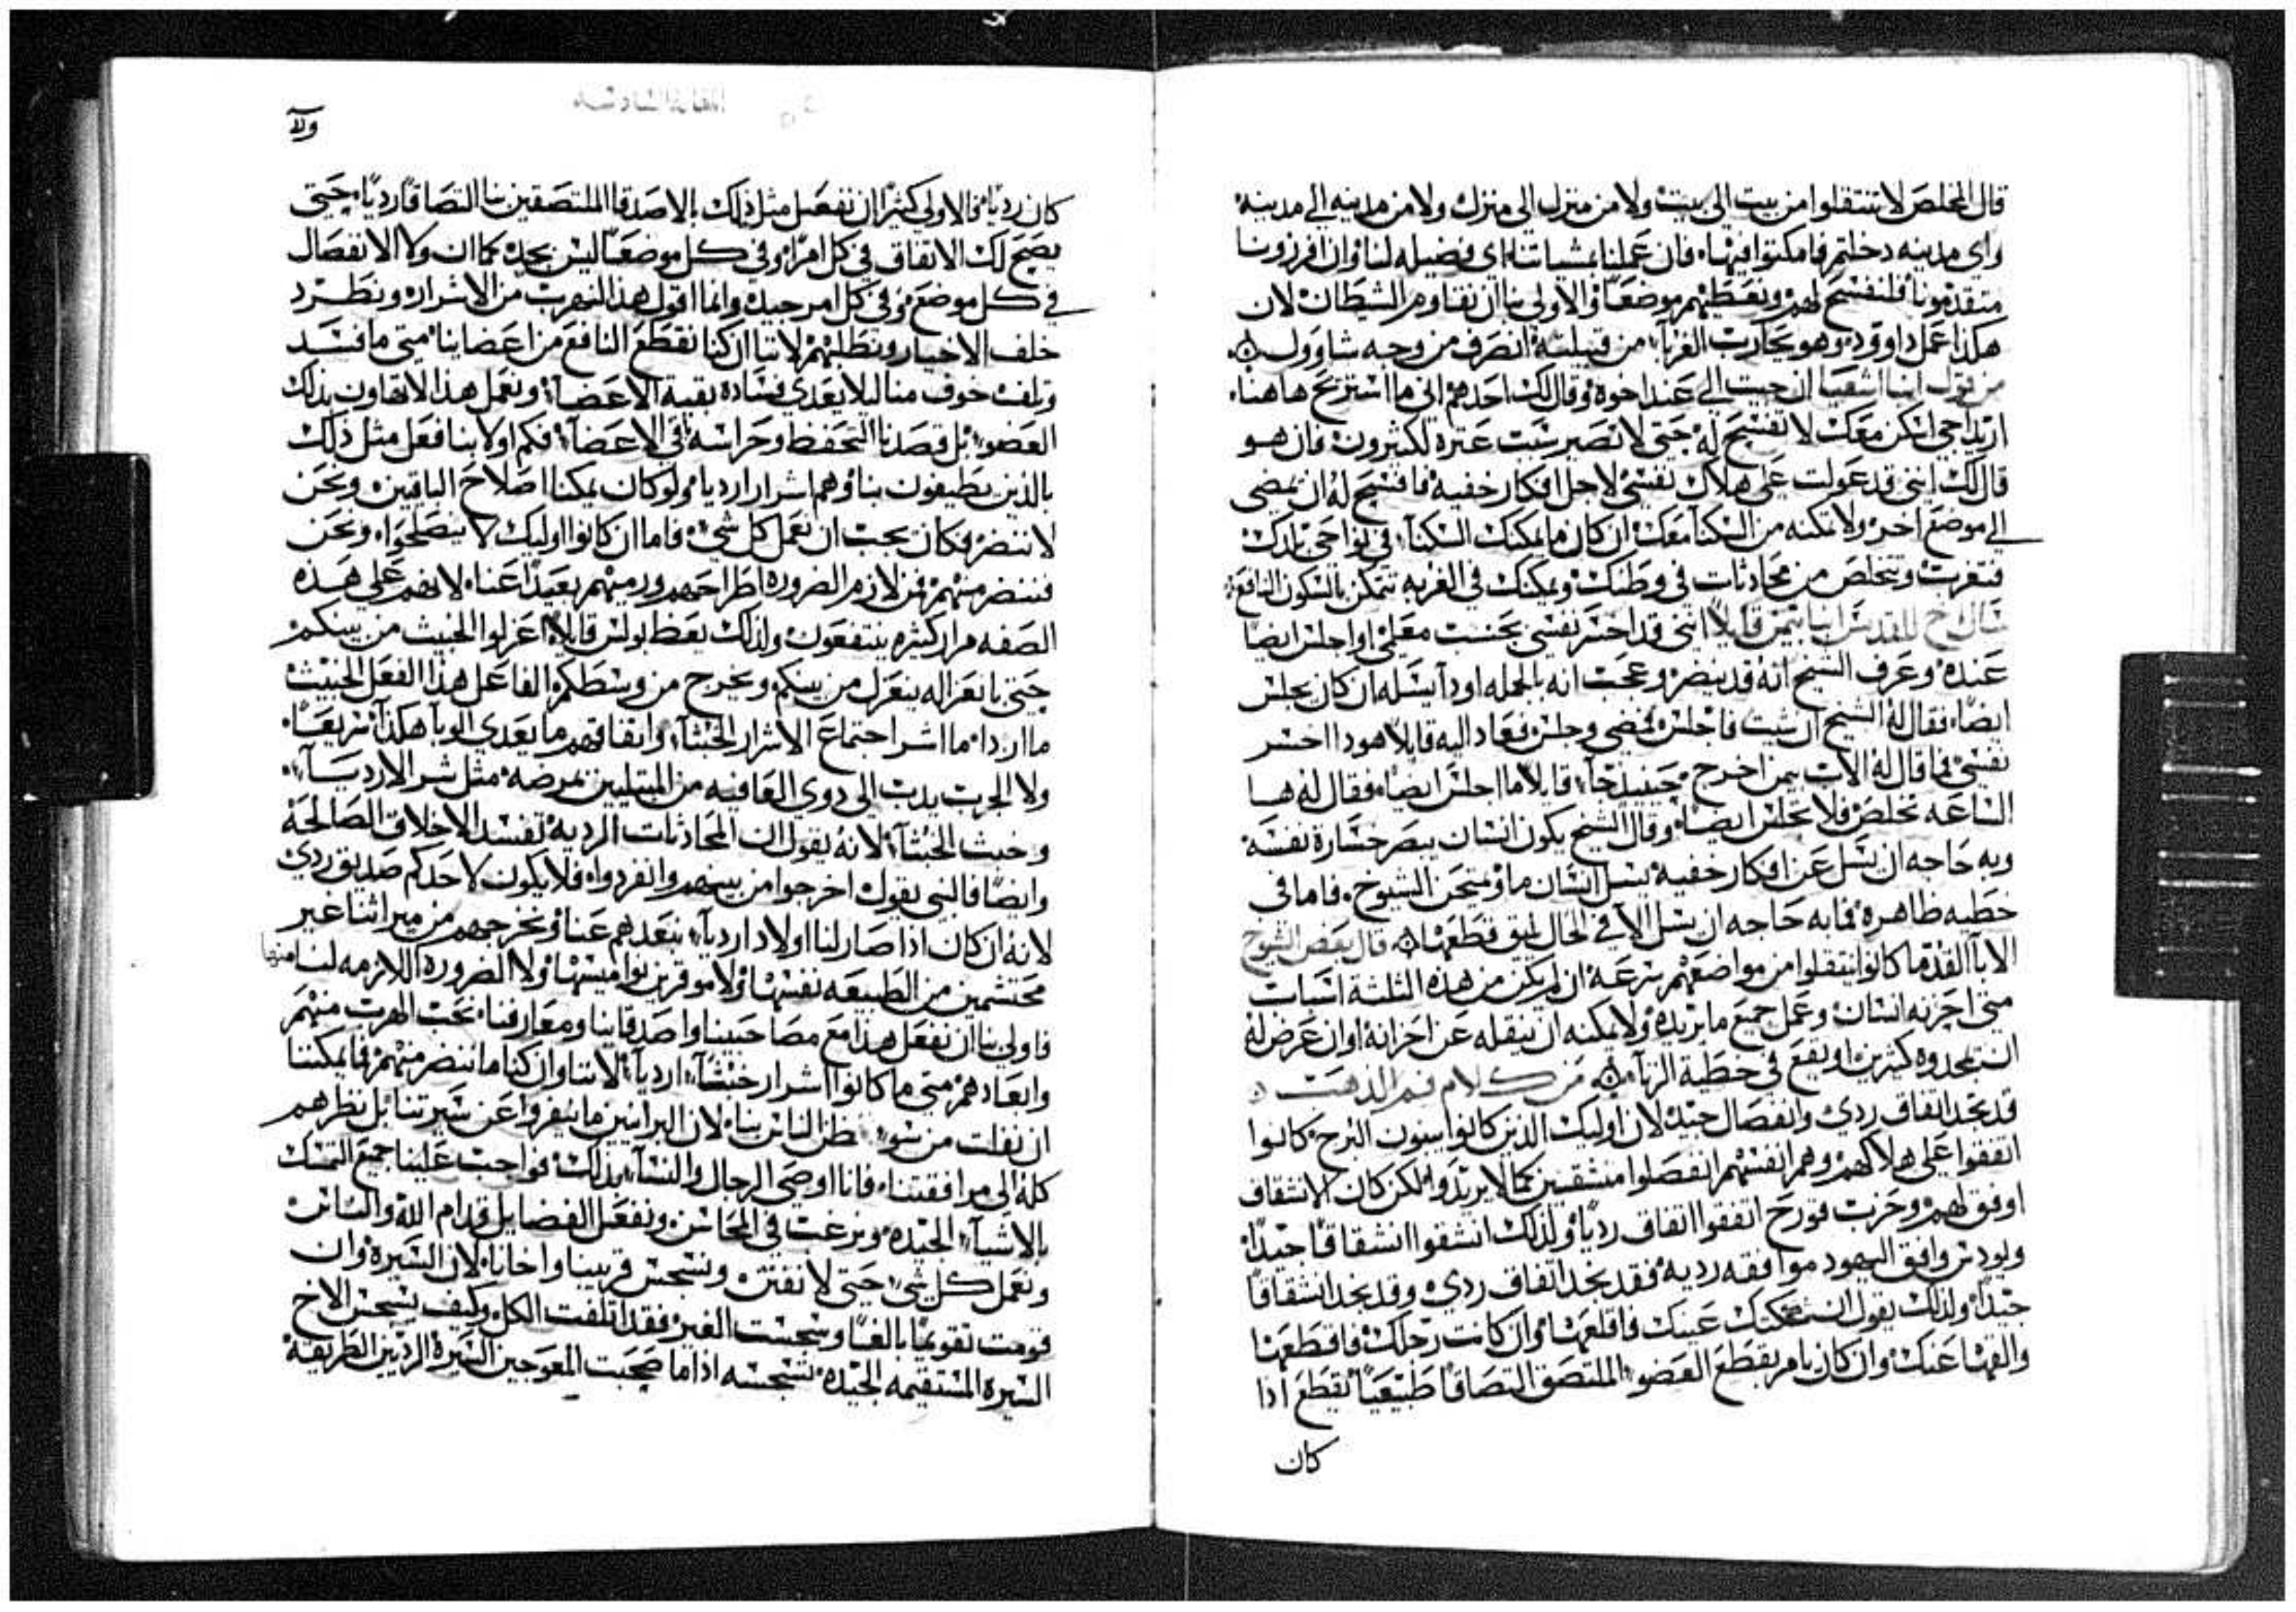 قال المخلص لا تنتقلوا من بيت الي بيت ولا من منزل الي منزل ولا من مدينه الي مدينه
واي مدينه دخلتم فامكتوا فيها فان عملنا بمشياتنا اي فضيله لنا وان افرزونا
متقدمونا فلنفسح لهم ونعطيهم موضعًا والاولي بنا ان نقاوم الشيطان لان
هكذا عمل داوود وهو يحارب الغربآ من قبيلته انصرف من وجه شاوول
من قول انبا اشعيا ان جيت الي عند اخوه وقال لك احدهم اني ما استريح هاهنا
اريد اجي اسكن معك لا تفسح له حتي لا تصير سبب عتره لكثيرون فان هو
قال لك انني قد عولت علي هلاك نفسي لاجل افكار خفيه فافسح له ان يمضي
الي موضع اخر ولا تمكنه من السكنا معك ان كان ما يمكنك السكنآ في نواحي بلدك
فتغرب وتتخلص من محادثات في وطنك ويمكنك في الغربه تتمكن بالسكون النافع
سال اخ للقديس انبا بيمن قايلاً انني قد اخسر نفسي بحسب معلمي اواجلس ايضا
عنده وعرف الشيخ انه قد ينضر وعجب انه بالجمله اودا يسله ان كان يجلس
ايضا فقال له الشيخ ان شيت فاجلس فمضي وجلس فعاد اليه قايلاً هودا اخسر
نفسي فما قال له الاب بيمن اخرج حينيذ جآ قايلا ما اجلس ايضا فقال له ها
الساعه تخلص فلا تجلس ايضا وقال الشيخ يكون انسان يبصر خسارة نفسه
وبه حاجه ان يسل عن افكار خفيه يسل انسان ما ويمتحن الشيوخ فاما في
خطيه ظاهره فما به حاجه ان يسل الا في الحال يقطعها قال بعض الشيوخ
الابآ القدما كانوا ينتقلوا من مواضعهم بسرعه ان لم يكن من هذه الثلثة اسباب
متي احزنه انسان وعمل جميع ما يريده ولا يمكنه ان ينقله عن احزانه او ان عرض له
ان يمجدوه كثيرين او يقع في خطية الزنآ من كلام فم الذهب
قد نجد اتفاق ردي وانفصال جيد لان اوليك الذين كانوا يبنون البرج كانوا
اتفقوا علي هلاكهم وهم انفسهم انفصلوا منشقين كما لا يريدوا لكن كان الانشقاق
اوفق لهم وحزب قورح اتفقوا اتفاق رديا ولذلك انشقوا انشقاقًا جيدًا
ويودس وافق اليهود موافقه رديه فقد نجد اتفاق ردي وقد نجد انشقاقًا
جيدًا ولذلك يقول ان شككتك عينك فاقلعها وان كانت رجلك فاقطعها
والقها عنك وان كان يامر بقطع العضو الملتصق التصاقًا طبيعيًا يقطع اذا
كان
كان رديا فالاولي كثيرًا ان نفعل مثل ذلك بالاصدقا الملتصقين بنا التصاقًا رديًا حتي
يصح لك الاتفاق في كل امرًا وفي كل موضعًا ليس بجيد كما ان ولا الانفصال
في كل موضع وفي كل امر جيد وانما اقول هذا لنهرب من الاشرار ونطرد
خلف الاخيار ونطلبهم لاننا ان كنا نقطع النافع من اعضاينا متي ما فسد
وتلف خوف منا ليلا يعدي فساده بقية الاعضآ ونعمل هذا لا تهاون بذلك
العضو بل قصدنا التحفظ وحراسه باقي الاعضآ فكم اولا بنا فعل مثل ذلك
بالذين يطيفون بنا وهم اشرار ارديا ولو كان يمكنا اصلاح الباقين ونحن
لا ننضر فكان يجب ان نعمل كل شي فاما ان كانوا اوليك لا ينصلحوا ونحن
فننضر منهم فمن لازم الضروره اطراحهم ورميهم بعيدًا عنا لانهم علي هذه
الصفه مرار كثيره ينتفعون ولذلك يعظ بولس قايلا اعزلوا الخبيث من بينكم
حتي بانعزاله ينعزل من بينكم ويخرج من وسطكم الفاعل هذا الفعل الخبيث
ما اردا ما اشر اجتماع الاشرار الخبثآ واتفاقهم ما يعدي الوبا هكذا سريعًا
ولا الجرب يدب الي دوي العافيه من المبتليين بمرضه مثل شر الارديآ
وخبث الخبثآ لانه يقول ان المحادثات الرديه تفسد الاخلاق الصالحة
وايضًا فالنبي يقول اخرجوا من بينهم وانفردوا فلا يكون لاحدكم صديق ردي
لانه ان كان اذا صار لنا اولاد ارديآ نبعدهم عنا ونخرجهم من ميراثنا غير
محتشمين من الطبيعه نفسها ولا موقرين نواميسها ولا الضروره اللازمه لنا منها
فاولي بنا ان نفعل هذا مع مصاحبينا واصدقاينا ومعارفنا نجب الهرب منهم
وابعادهم متي ما كانوا اشرار خبثآ ارديآ لاننا وان كنا ما ننضر منهم فما يمكننا
ان نفلت من سو ظن الناس بنا لان البرانيين ما ينفروا عن سيرتنا بل نظرهم
كله الي مرافقتنا فانا اوصي الرجال والنسآ بذلك فواجب علينا جميع التمسك
بالاشيآ الجيده ونرغب في المحاسن ونفعل الفضايل قدام الله والناس
ونعمل كل شي حتي لا نفتن ونسجس قريبنا واخانا لان السيرة وان
قومت تقويمًا بالغًا وسجست الغير فقد اتلفت الكل وكيف تسجس الاخ
السيره المستقيمه الجيده تسجسه اذا ما صحبت المعوجين السيرة الرديين الطريقة